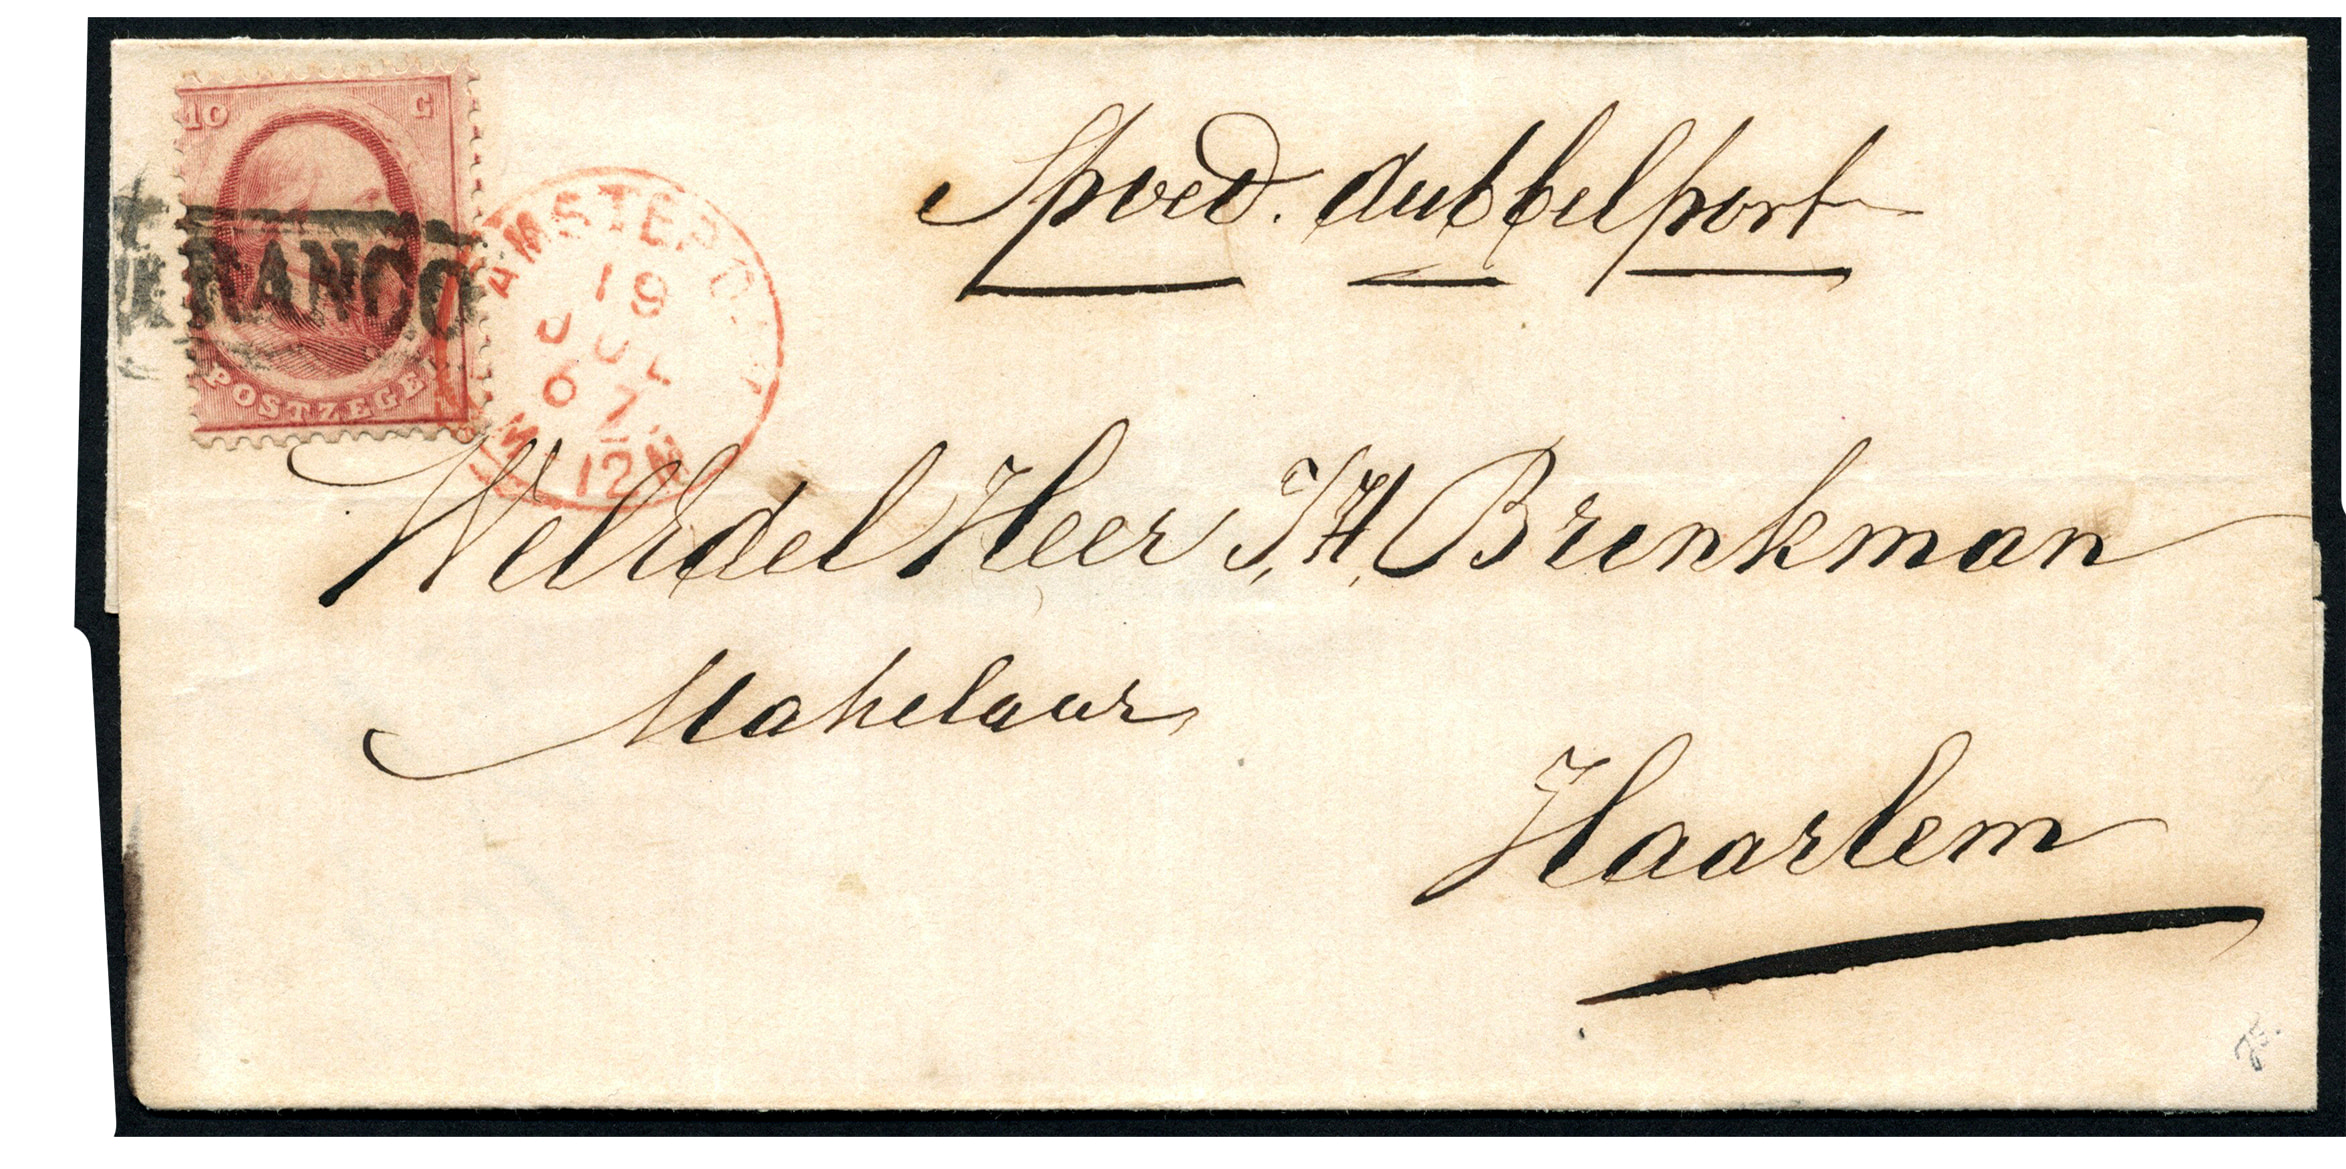 10 C
FRANCO
POSTZEGEL
AMSTERDAM
19
JUL
67
12M
Spoed. dubbelport
WelEdel Heer J, H, Brenkman
Makelaar
Haarlem